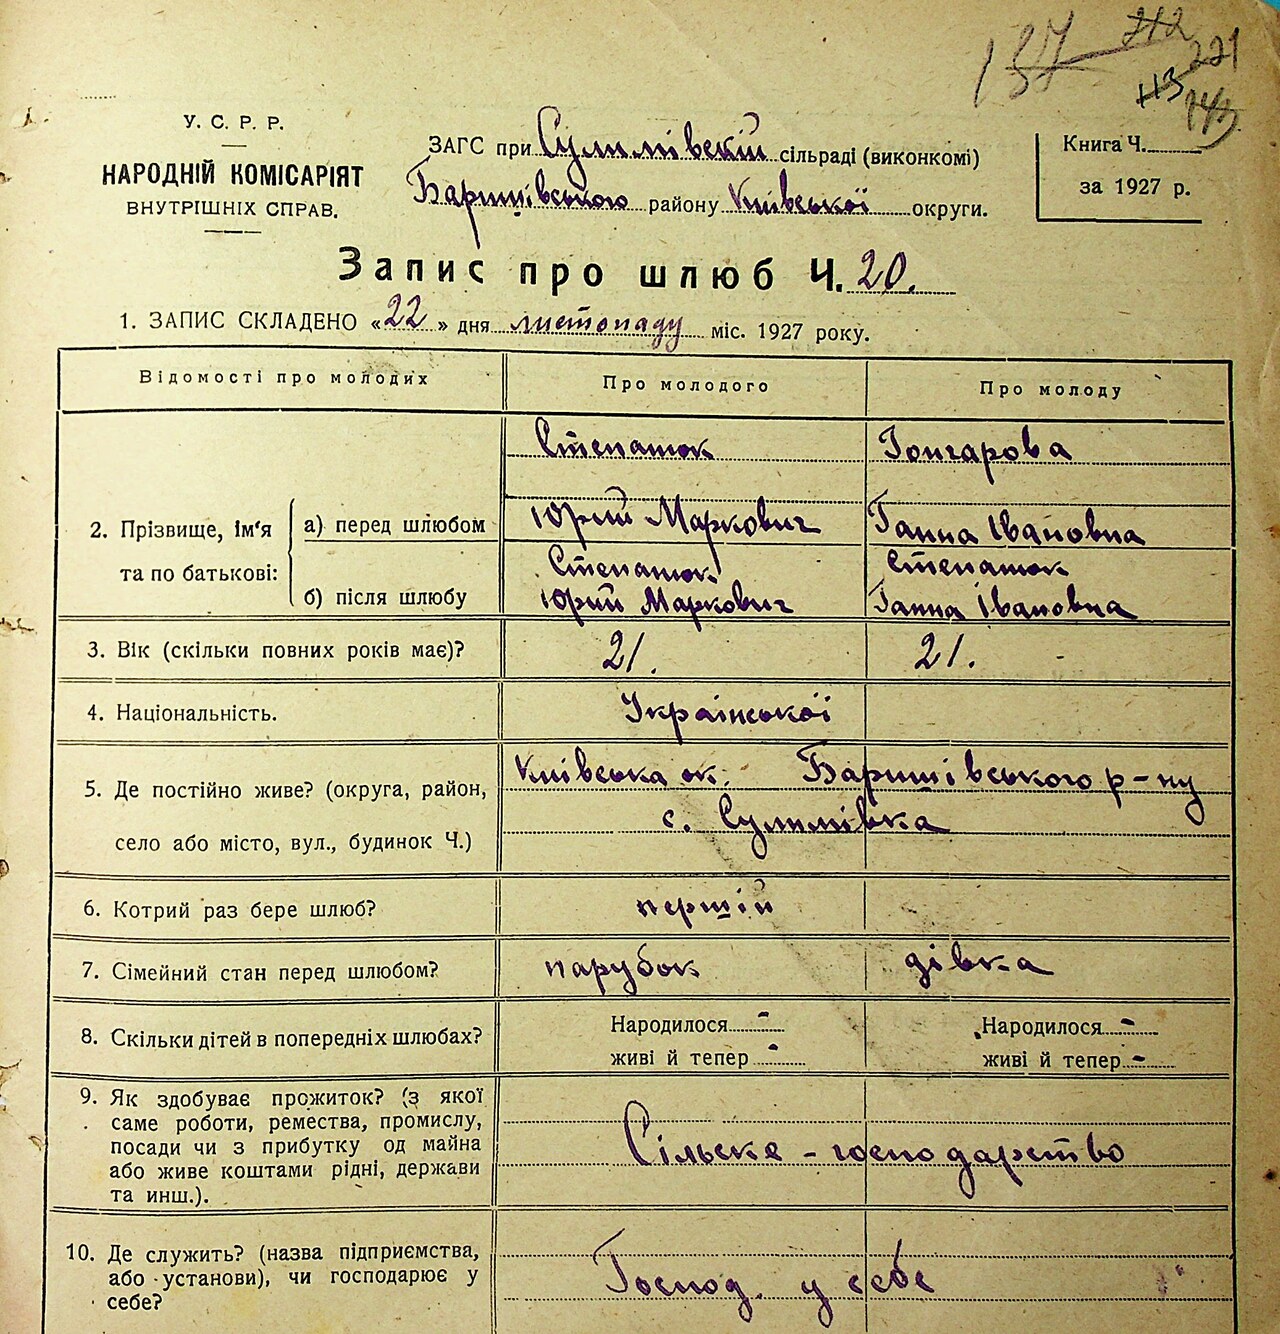 137 212
221
113
143
У. С. Р. Р.
НАРОДНІЙ КОМІСАРІЯТ
ВНУТРІШНІХ СПРАВ.
ЗАГС при Сулимівскій сільраді (виконкомі)
Баришівського району Київської округи.
Книга Ч.
за 1927 р.
Запис про шлюб Ч. 20.
1. ЗАПИС СКЛАДЕНО «22» дня листопаду міс. 1927 року.
Відомості про молодих Про молодого Про молоду
2. Прізвище, ім'я та по батькові:
а) перед шлюбом
Степанюк Гончарова
Юрий Маркович Ганна Івановна
б) після шлюбу
Степанюк Степанюк
Юрий Маркович Ганна Івановна
3. Вік (скільки повних років має)? 21. 21.
4. Національність. Української
5. Де постійно живе? (округа, район,
село або місто, вул., будинок Ч.)
Київська ок. Баришівського р-ну
с. Сулимівка
6. Котрий раз бере шлюб? першій
7. Сімейний стан перед шлюбом? парубок дівка
8. Скільки дітей в попередніх шлюбах?
Народилося - Народилося -
живі й тепер - живі й тепер -
9. Як здобуває прожиток? (з якої
саме роботи, ремества, промислу,
посади чи з прибутку од майна
або живе коштами рідні, держави
та инш.).
Сільске-господарство
10. Де служить? (назва підприємства,
або установи), чи господарює у
себе?
Господ. у себе